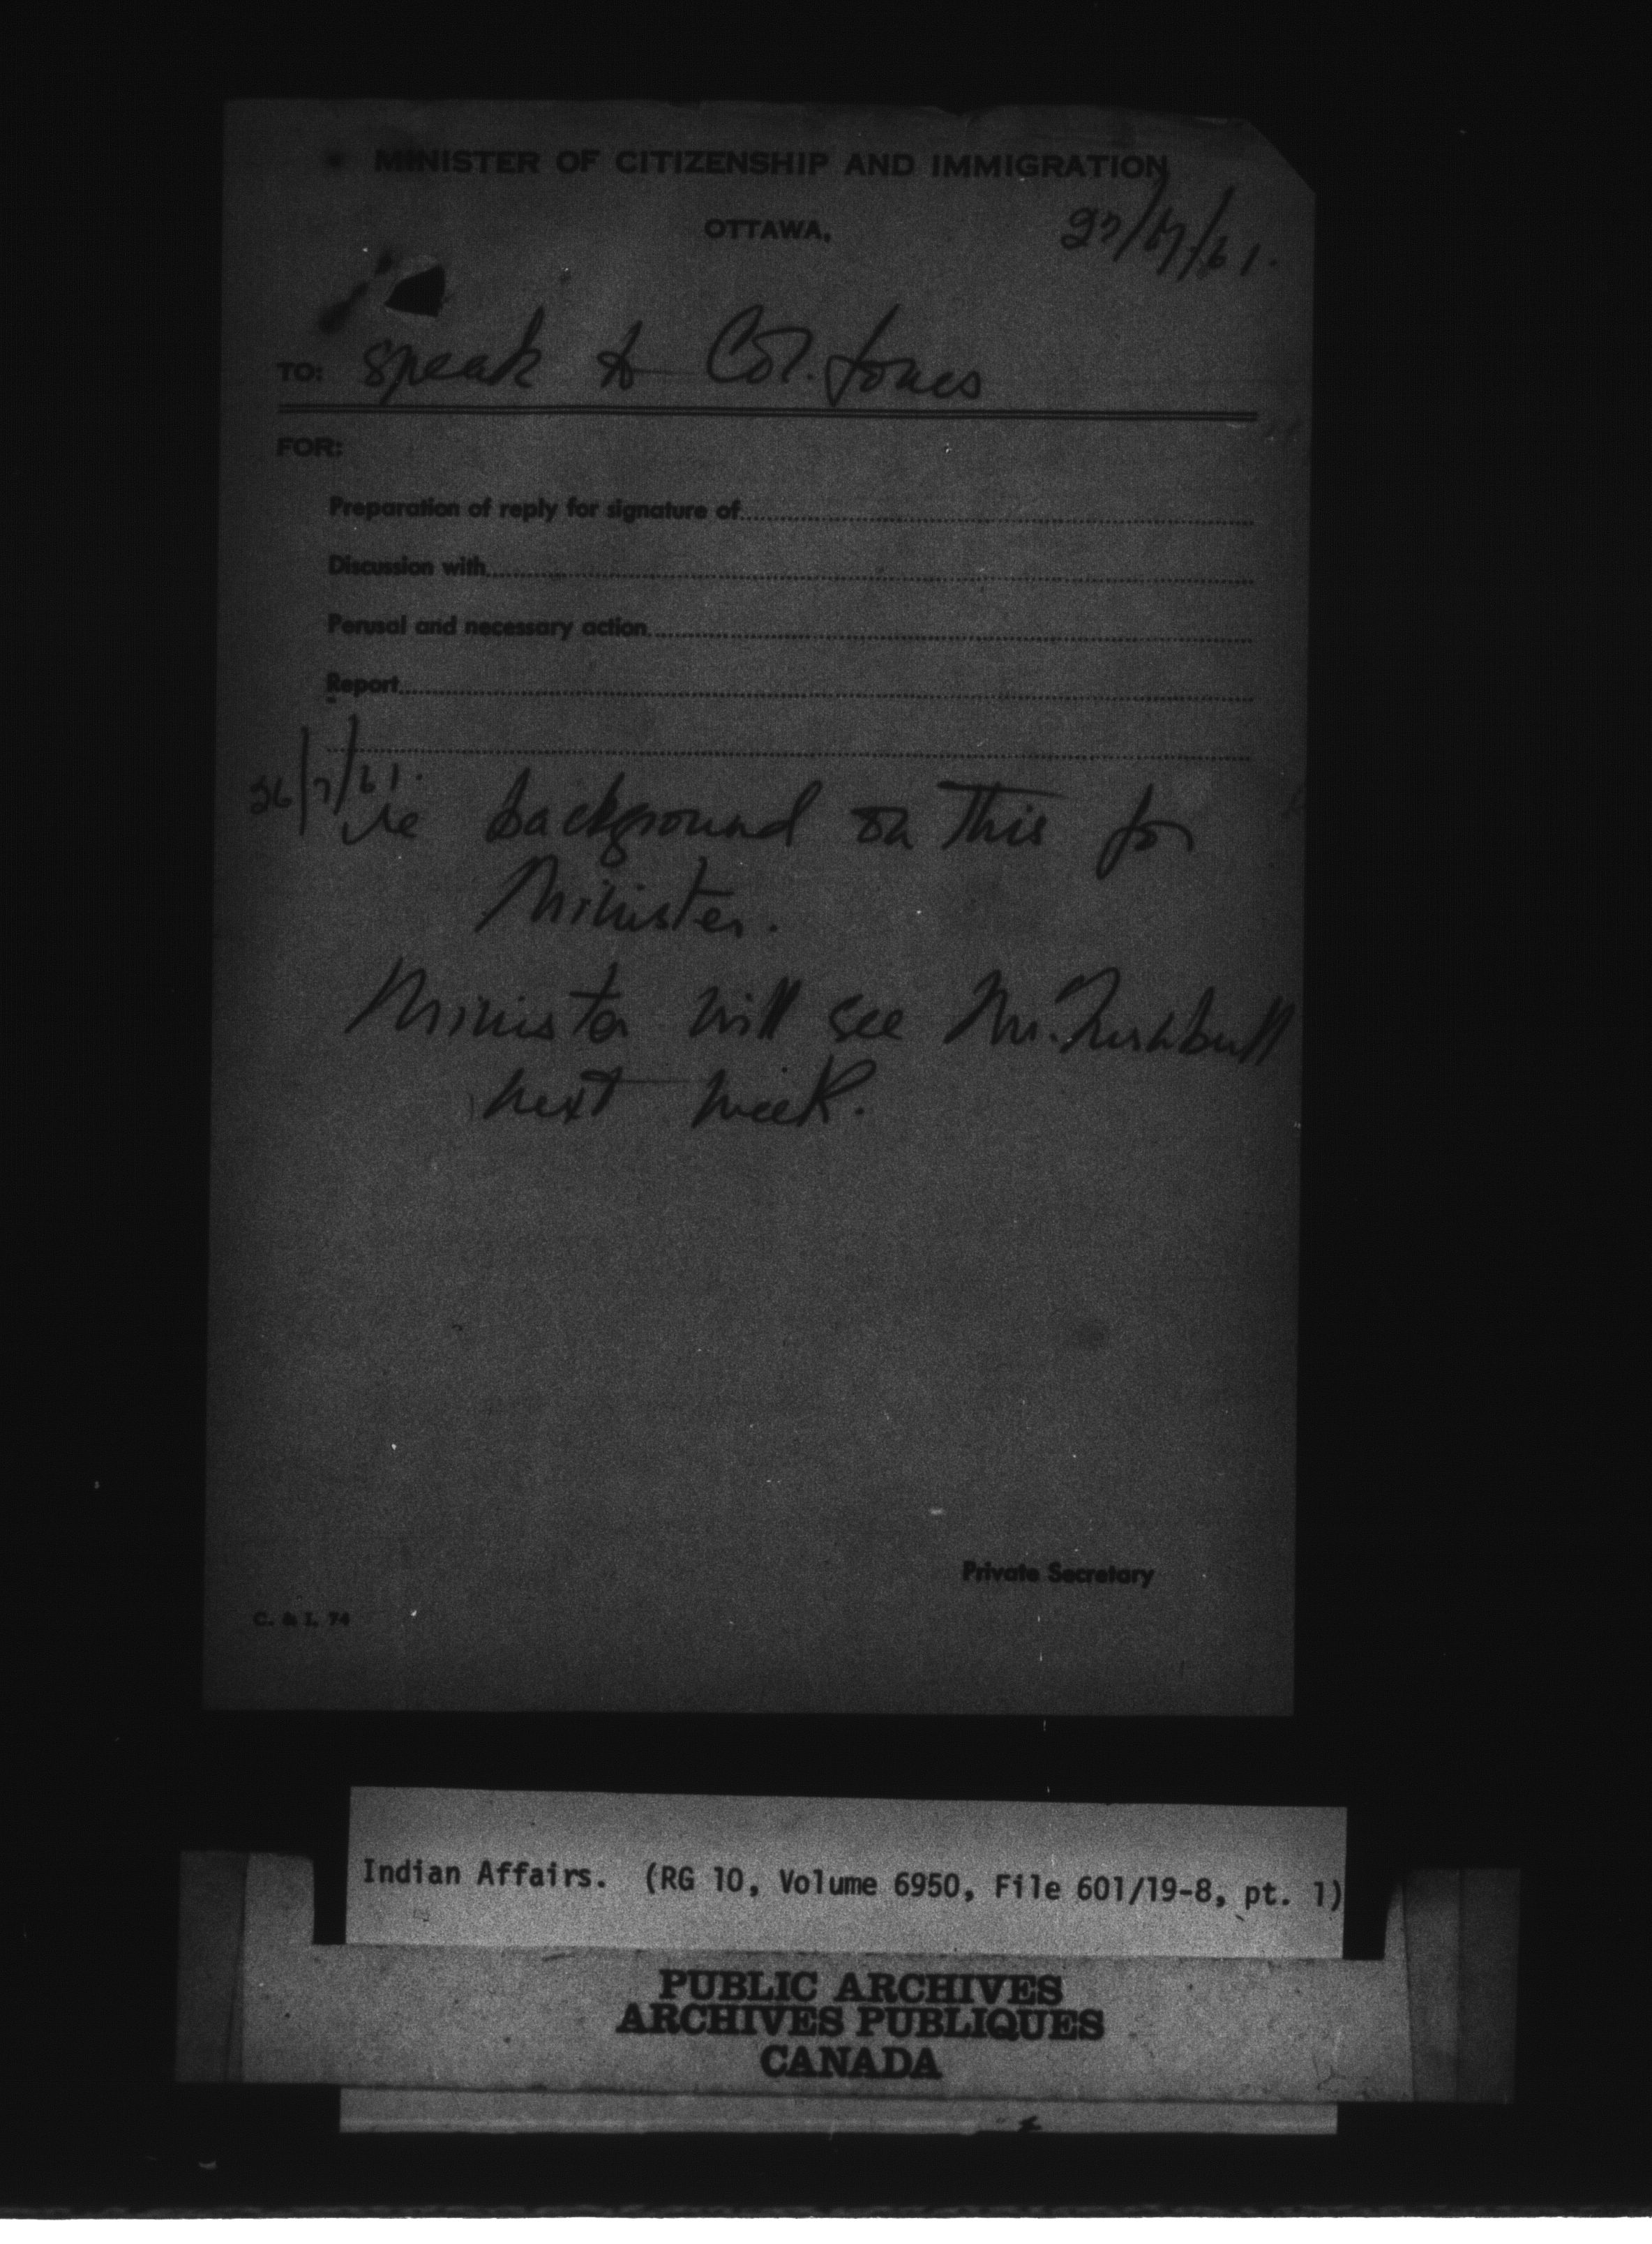 MINISTER OF CITIZENSHIP AND IMMIGRATION
OTTAWA,
TO: speak to Col. Jones
FOR:
Preparation of reply for signature of
Discussion with
Perusal and necessary action
Report
26/7/61.
re background on this for
Minister.
Minister will see Mr.
next week.
Private Secretary
C. & I. 74
Indian Affairs. (RG 10, Volume 6950, File 601/19-8, pt. 1)
PUBLIC ARCHIVES
ARCHIVES PUBLIQUES
CANADA